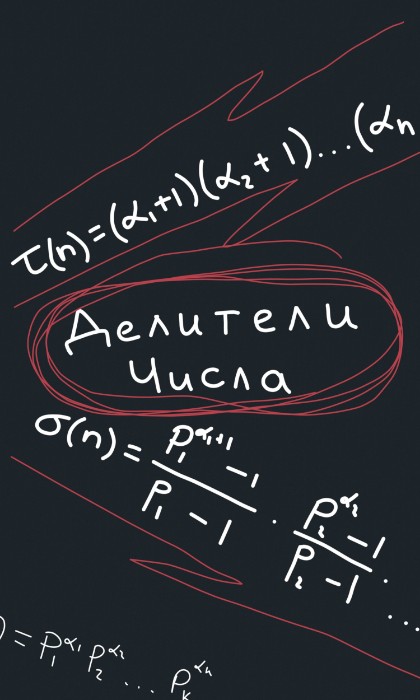 τ(n)=(α₁+1)(α₂+1)...(αn
Делители
числа
σ(n)= (P₁^(α₁+1) -1)/(P₁-1) · (P₂^(α₂) -1)/(P₂-1) · ...
)=P₁^(α₁) P₂^(α₂) ... Pₖ^(αₖ)